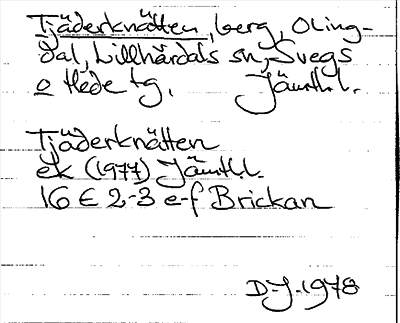 Tjäderknätten, berg, Oling-
dal, Lillhärdals sn, Svegs
o Hede tg. Jämtl. l.
Tjäderknätten
ek (1977) Jämtl.l.
16 E 2-3 e-f Brickan
D.J. 1978